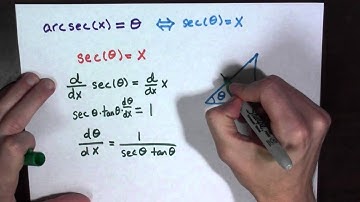 arcsec(x) = θ ⇔ sec(θ) = x
sec(θ) = x
d/dx sec(θ) = d/dx x
secθ·tanθ·dθ/dx = 1
dθ/dx = 1/(secθ tanθ)
θ